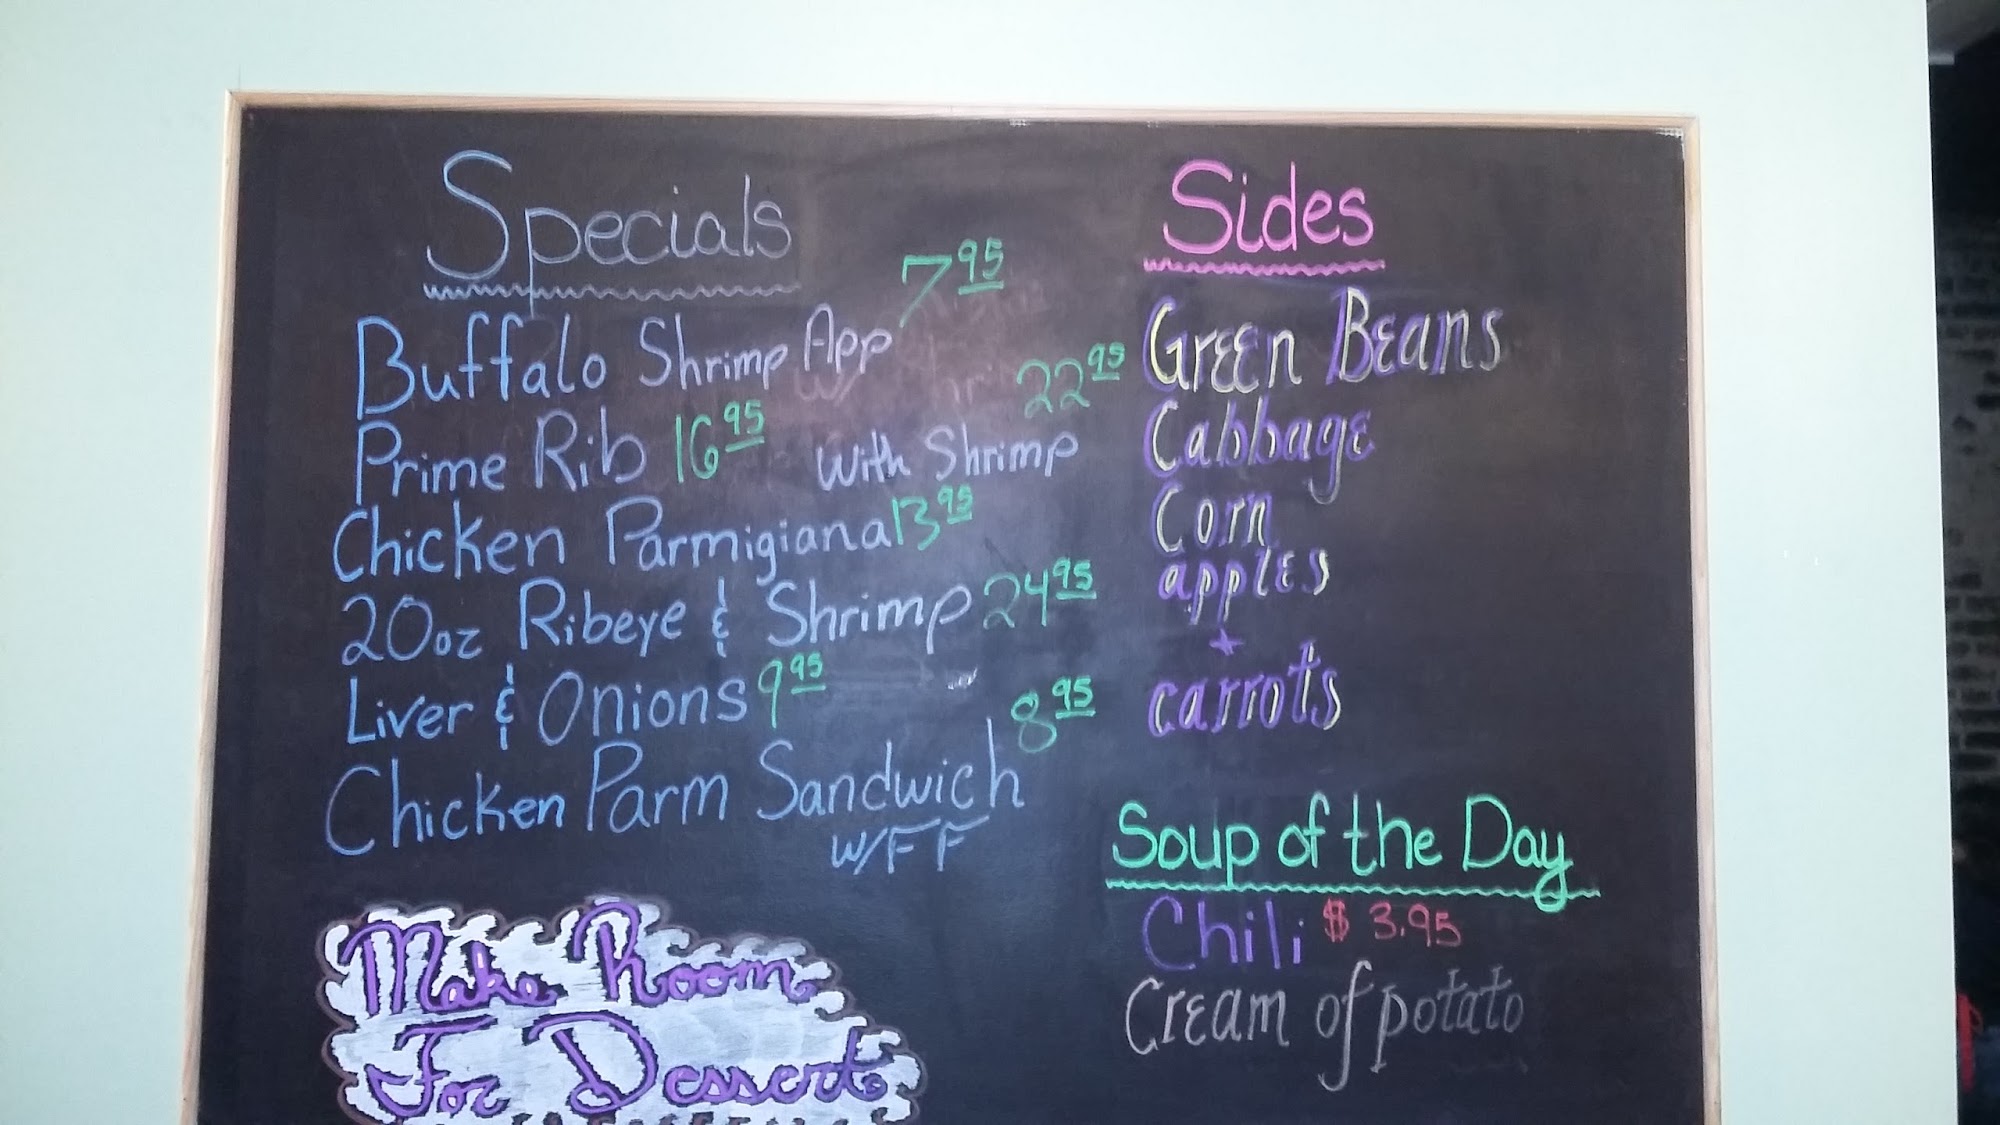 Specials
Buffalo Shrimp App 7 95
Prime Rib 16 95 With Shrimp 22 95
Chicken Parmigiana 13 95
20oz Ribeye & Shrimp 24 95
Liver & Onions 9 95
Chicken Parm Sandwich 8 95
W/FF
Make Room
For Dessert
Sides
Green Beans
Cabbage
Corn
apples
+
carrots
Soup of the Day
Chili $ 3.95
Cream of potato